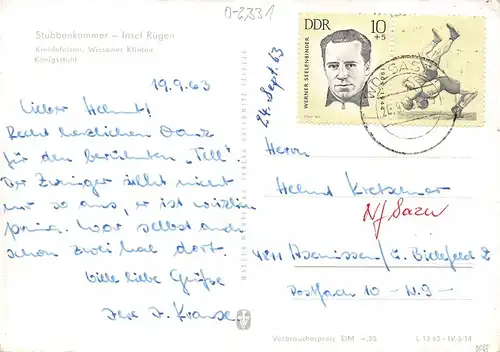 0-2331
Stubbenkammer – Insel Rügen
Kreidefelsen, Wissower Klinken
Königsstuhl
19.9.63
Lieber Helmut!
Recht herzlichen Dank
für den berühmten „Tell".
Der Zwinger sieht nicht
nur so aus, er ist wirklich
prima. War selbst auch
schon zweimal dort.
Viele liebe Grüße
Ihre J. Krause
24. Sept. 63
DDR 10
+5
WERNER SEELENBINDER
WOLGAST
Herrn
Helmut Kretschmer
4811 /ü. Bielefeld 2
Postfach 10 - N.J-
Verbraucherpreis DM –,20
L 13 63 - IV/5/14